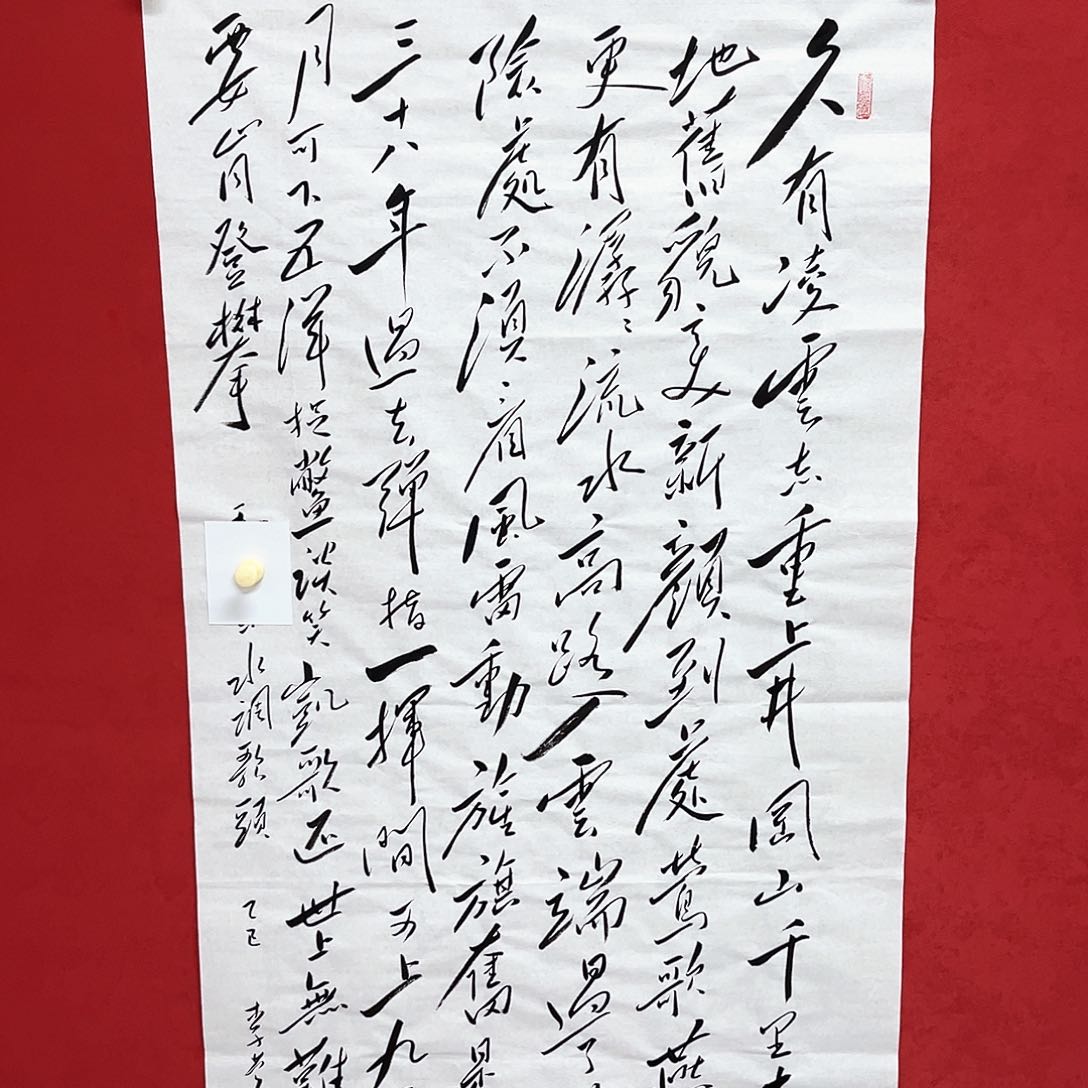 久有凌雲志重上井岡山千里
地舊貌变新顔到處鶯歌燕
更有潺々流水高路入雲端過了
險處不須看風雷動旌旗奮是
三十八年過去彈指一揮間可上九
月可下五洋捉鱉談笑凱歌还世上無難
要肯登攀
水調歌頭 乙巳 李